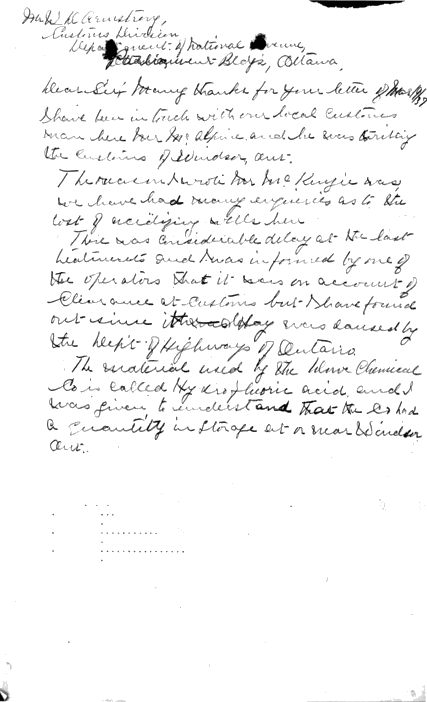 Mr W. K. Armstrong,
Customs Division
Department of National Revenue,
Bldgs, Ottawa,
Dear Sir: Many thanks for your letter of
I have been in touch with our local customs
man here Mr Mc Alpine and he was writing
the customs of Windsor, Ont.
The reason I wrote Mr Mc Kenzie was
we have had many enquiries as to the
cost of acidizing wells here
There was considerable delay at the last
treatments and I was informed by one of
the operators that it was on account of
Clearance at Customs but I have found
out since the delay was caused by
the Dep't of Highways of Ontario
The material used by the Dow Chemical
Co is called Hydrofluoric acid and I
was given to understand that the Co had
a quantity in storage at or near Windsor
Ont.